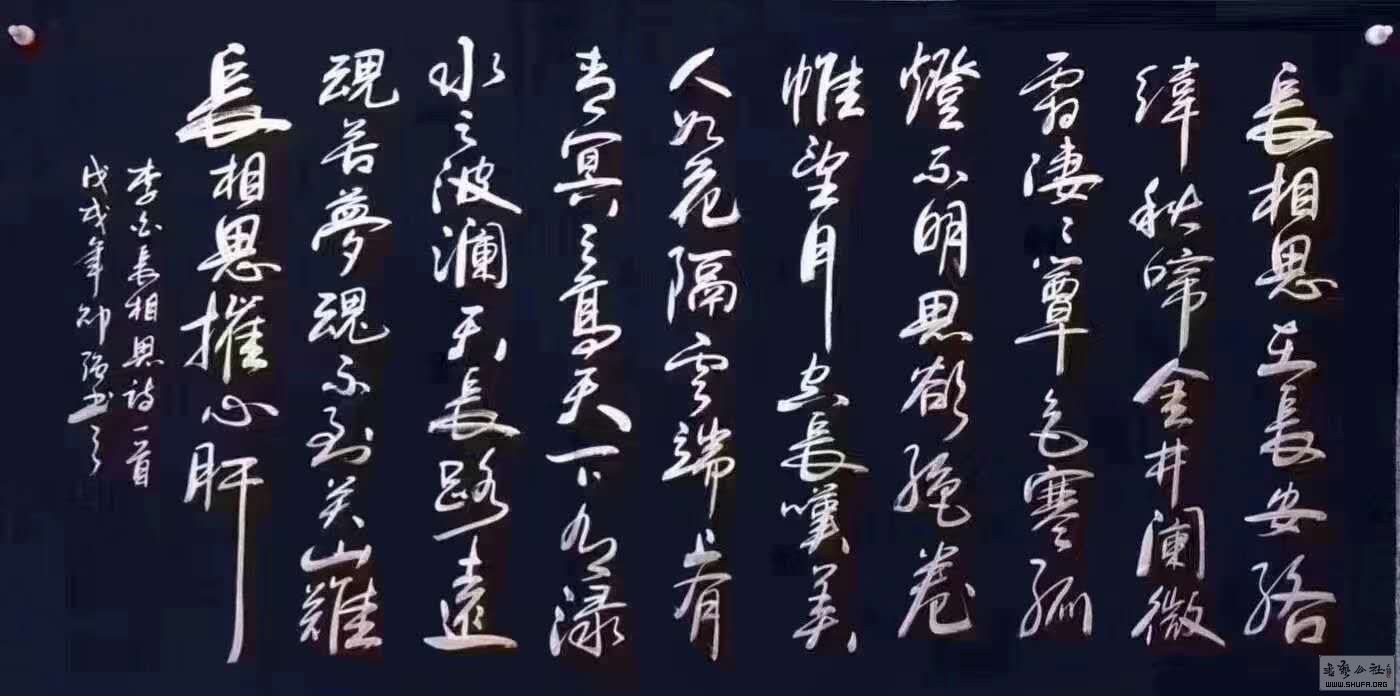 長相思在長安络
緯秋啼金井闌微
霜淒〻簟色寒孤
燈不明思欲绝卷
帷望月空長嘆美
人如花隔雲端上有
青冥〻高天下有渌
水之波瀾天長路遠
魂苦夢魂不到关山難
長相思摧心肝
李白長相思詩一首
戊戌年邹强书之
书艺公社
WWW.SHUFA.ORG